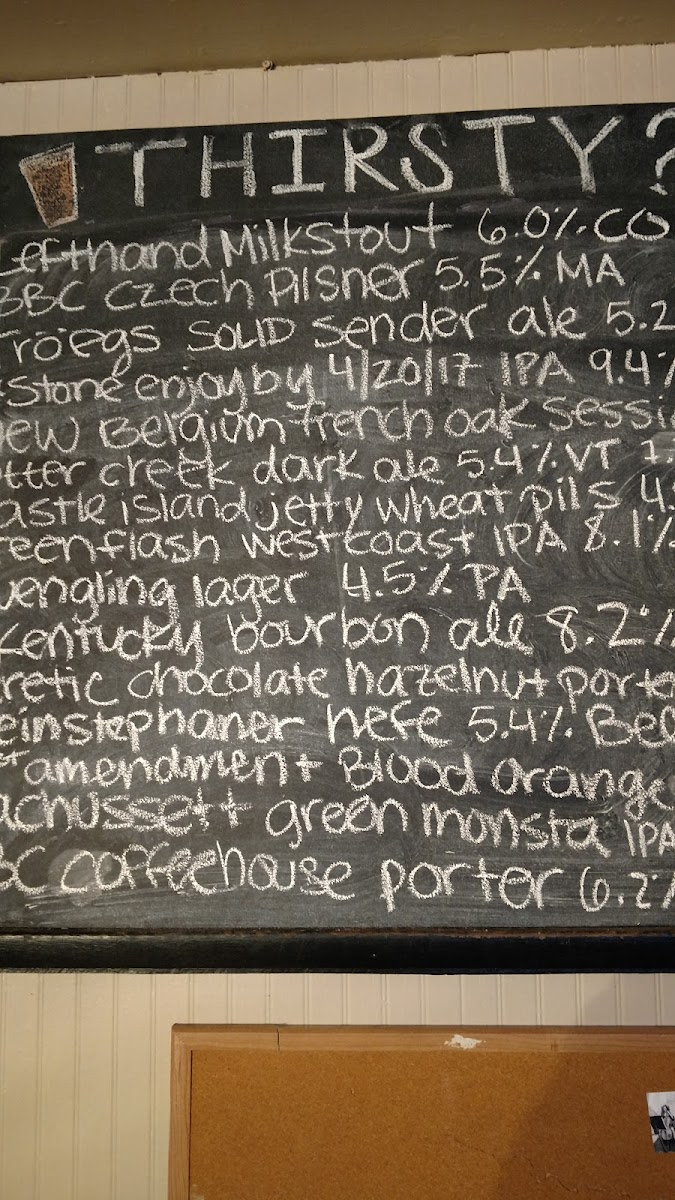 THIRSTY?
Lefthand Milkstout 6.0% CO
BBC Czech Pilsner 5.5% MA
Troegs SOLID Sender ale 5.2
Stone enjoy by 4/20/17 IPA 9.4%
New Belgium french oak sessi
tter creek dark ale 5.4% VT
astle island jetty wheat pils 4.
eenflash westcoast IPA 8.1%
uengling lager 4.5% PA
Kentucky bourbon ale 8.2%
retic chocolate hazelnut porte
einstephaner hefe 5.4%
st amendment Blood orange
achussett green monsta IPA
BC coffeehouse porter 6.2%